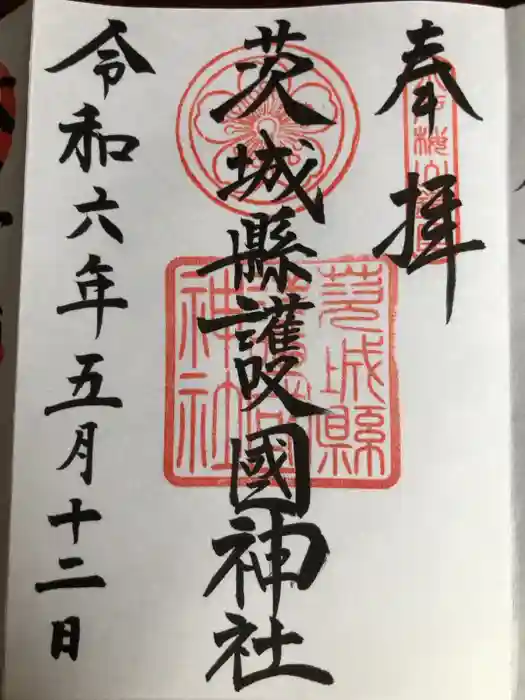 奉拝
茨城縣護國神社
茨城縣護國神社
令和六年五月十二日